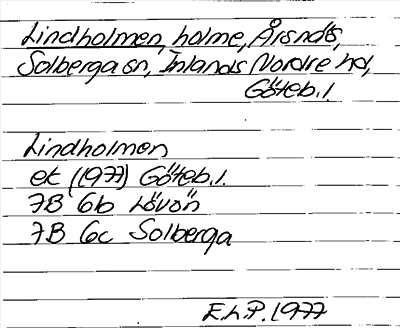 Lindholmen, holme, Årsnäs,
Solberga sn, Inlands Nordre hd,
Göteb. l.
Lindholmen
ek (1977) Göteb. l.
7B 6b Lövön
7B 6c Solberga
E.h.P. 1977